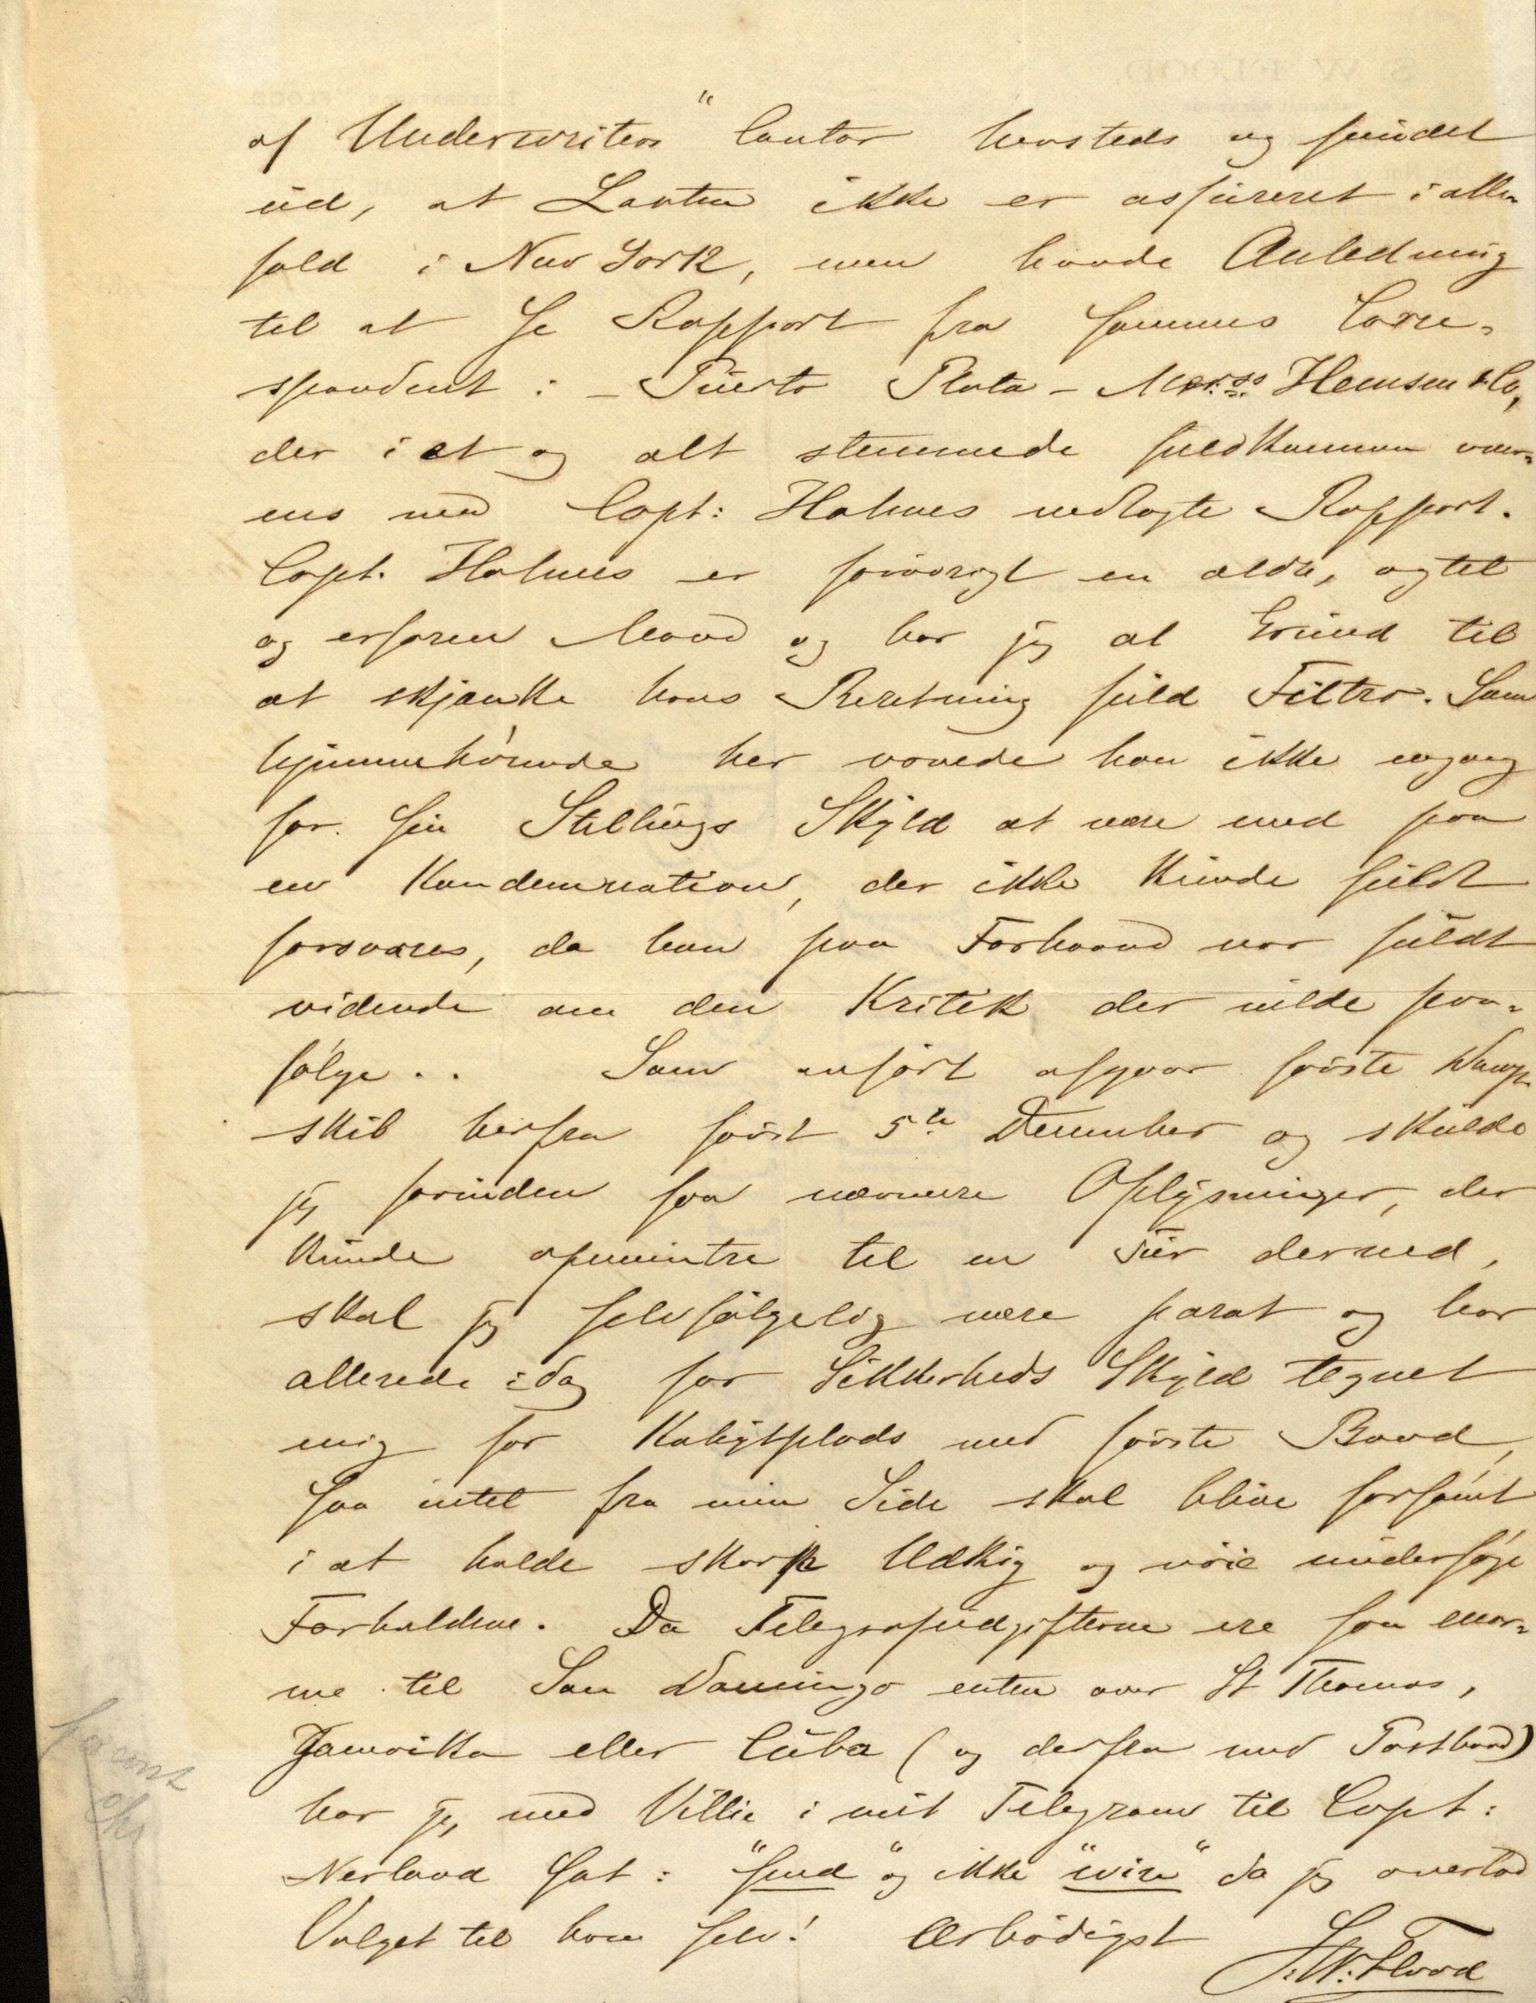 af Underwriters" Contor hersteds og fundet
ud, at Lasten ikke er assureret i alle
fald i New York, men havde Anledning
til at se Rapport fra sammes Corre-
spondent i - Puerto Plata - Messrs. Heinsen & Co,
der i et og alt stemmede fuldkommen over-
ens med Capt: Holmes nedlagte Rapport.
Capt. Holmes er forøvrigt en ældre, agtet
og erfaren Mand og har jeg al Grund til
at skjænke hans Beretning fuld Tiltro. Som
hjemmehørende her vovede han ikke engang
for sin Stillings Skyld at være med paa
en Kondemnation, der ikke kunde fuldt
forsvares, da han paa Forhaand var fuldt
vidende om den Kritik der vilde paa-
følge.. Som anført afgaar første Damp-
skib herfra først 5te December og skulde
jeg forinden faa nærmere Oplysninger, der
kunde opmuntre til en Tur derned,
skal jeg selvfølgelig være parat og har
allerede idag for Sikkerheds Skyld tegnet
mig for Kahytplads med første Baad,
saa intet fra min Side skal blive forsømt
i at holde skarp Udkig og nöie undersøge
Forholdene. Da Telegrafudgifterne ere saa enor-
me til San Domingo enten over St Thomas,
Jamaika eller Cuba (og derfra med Postbaad)
har jeg med Villie i mit Telegram til Capt:
Nerland sat: "send" og ikke "wire" da jeg overlod
Valget til ham selv! Ærbødigst
S. W. Flood